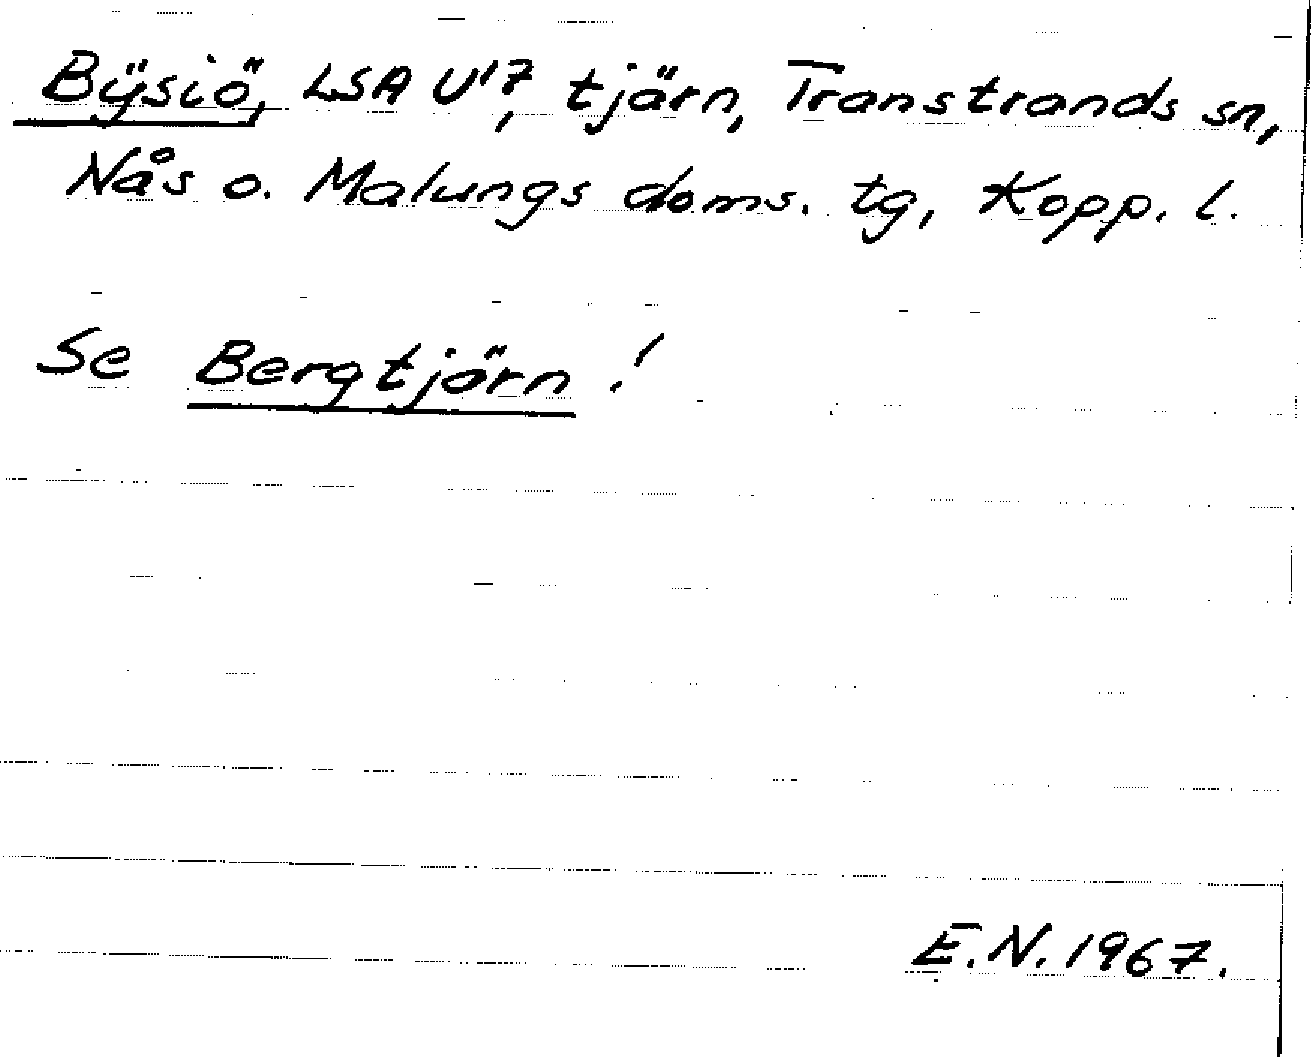 Bÿsiö, LSA U17, tjärn, Transtrands sn,
Nås o. Malungs doms. tg, Kopp. l.
Se Bergtjörn!
E.N. 1967.